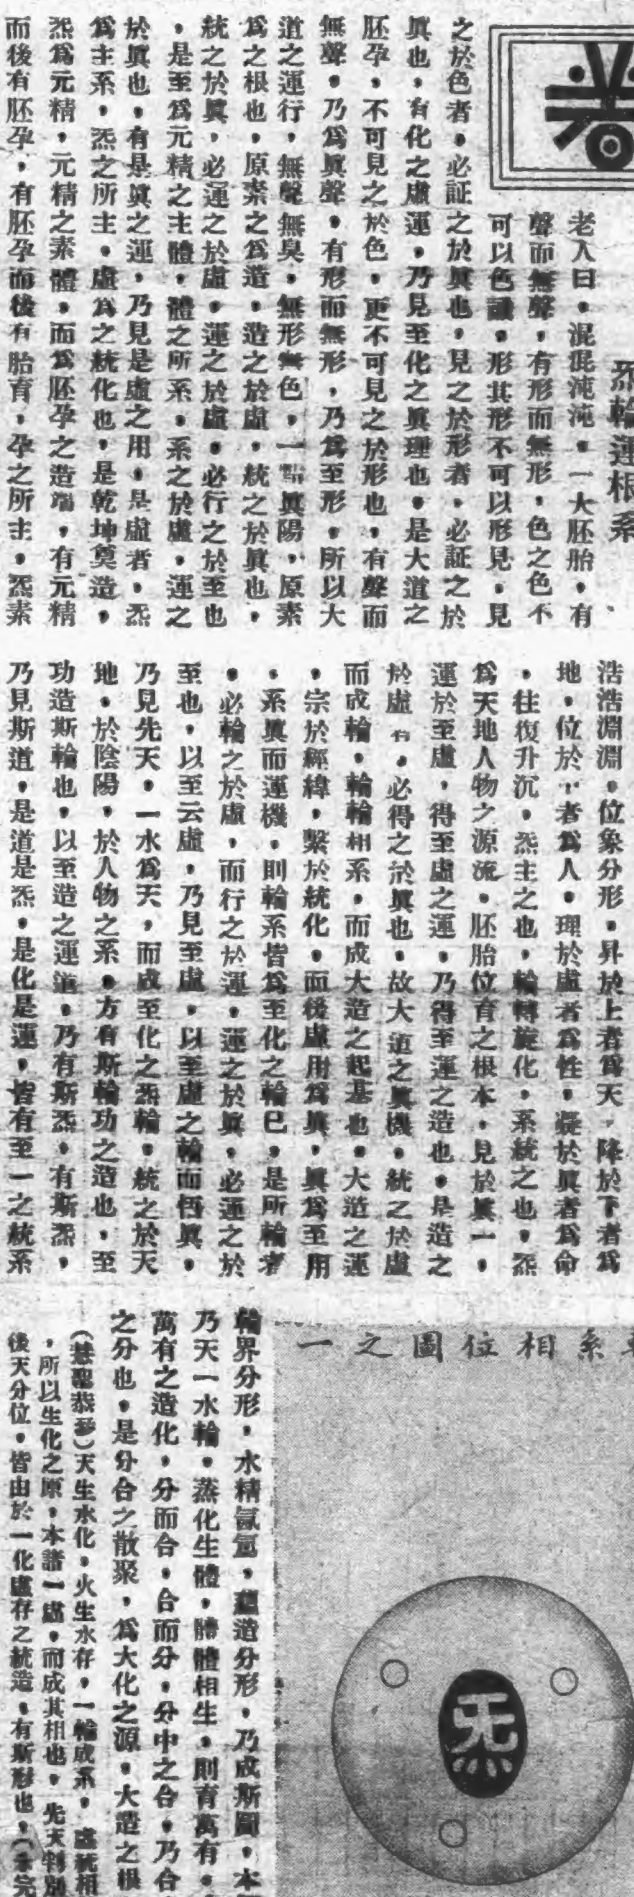 炁輪運根系
老人曰。混混沌沌。一大胚胎。有
聲而無聲。有形而無形。色之色不
可以色識。形其形不可以形見。見
之於色者。必証之於眞也。見之於形者。必証之於
眞也。有化之虛運。乃見至化之眞理也。是大道之
胚孕。不可見之於色。更不可見之於形也。有聲而
無聲。乃爲眞聲。有形而無形。乃爲至形。所以大
道之運行。無聲無臭。無形無色。一點眞陽。原素
爲之根也。原素之爲造。造之於虛。統之於眞也。
統之於眞。必運之於虛。運之於虛。必行之於至也
。是至爲元精之主體。體之所系。系之於虛。運之
於眞也。有是眞之運。乃見是虛之用。是虛者。炁
爲主系。炁之所主。虛爲之統化也。是乾坤奠造。
炁爲元精。元精之素體。而爲胚孕之造端。有元精
而後有胚孕。有胚孕而後有胎育。孕之所主。炁素
浩浩淵淵。位象分形。昇於上者爲天。降於下者爲
地。位於中者爲人。理於虛者爲性。凝於眞者爲命
。往復升沉。炁主之也。輪轉旋化。系統之也。炁
爲天地人物之源流。胚胎位育之根本。見於眞一。
運於至虛。得至虛之運。乃得至運之造也。是造之
於虛者。必得之於眞也。故大道之眞機。統之於虛
而成輪。輪輪相系。而成大造之起基也。大造之運
。宗於經緯。繫於統化。而後虛用爲眞。眞爲至用
。系眞而運機。則輪系皆爲至化之輪已。是所輪者
。必輪之於虛。而行之於運。運之於眞。必運之於
至也。以至云虛。乃見至虛。以至虛之輪而悟眞。
乃見先天。一水爲天。而成至化之炁輪。統之於天
地。於陰陽。於人物之系。方有斯輪功之造也。至
功造斯輪也。以至造之運道。乃有斯炁。有斯炁。
乃見斯道。是道是炁。是化是運。皆有至一之統系
系相位圖之一
炁
輪界分形。水精氤氳。蘊造分形。乃成斯圖。本
乃天一水輪。蒸化生體。體體相生。則育萬有。
萬有之造化。分而合。合而分。分中之合。乃合
之分也。是分合之散聚。爲大化之源。大造之根
(慧聖恭參)天生水化。火生水存。一輪成系。虛統相
。所以生化之原。本諸一虛。而成其相也。先天判別
後天分位。皆由於一化虛存之統造。有斯形也。(未完